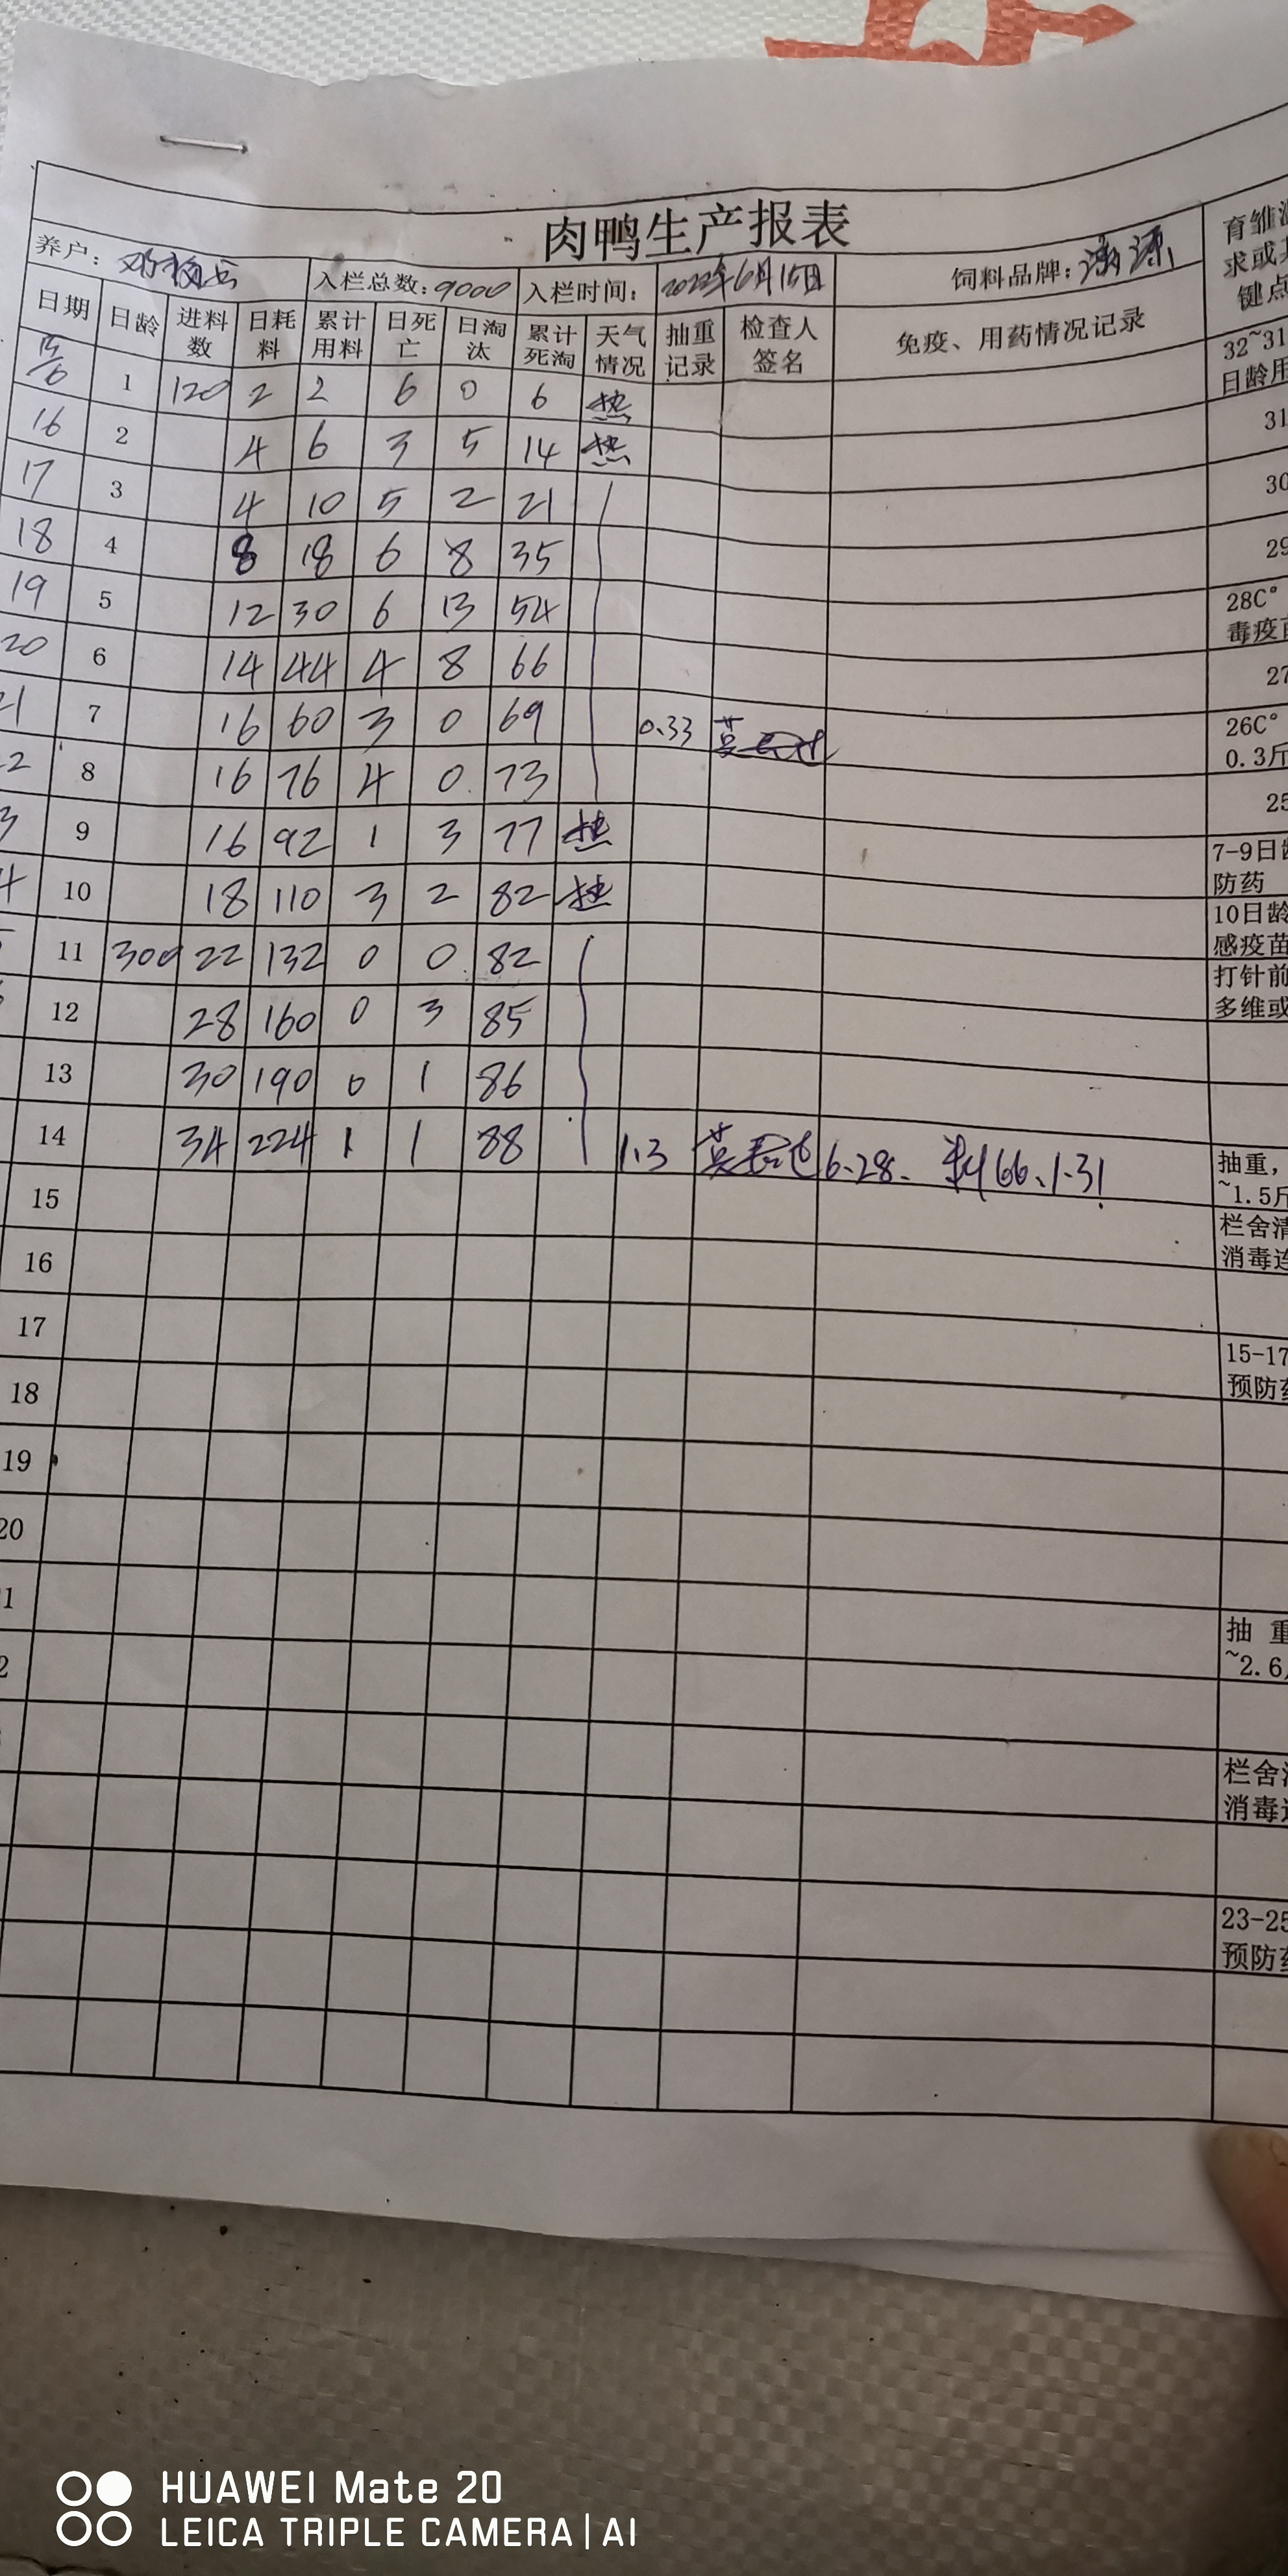 肉鸭生产报表
养户： 入栏总数：9000 入栏时间： 2022年6月15日 饲料品牌： 育雏
求或
键点
日期 日龄 进料数 日耗料 累计用料 日死亡 日淘汰 累计死淘 天气情况 抽重记录 检查人签名 免疫、用药情况记录
15/6 1 120 2 2 6 0 6 热 32~31
日龄用
16 2 4 6 3 5 14 热 31
17 3 4 10 5 2 21 30
18 4 8 18 6 8 35 29
19 5 12 30 6 13 54 28C°
毒疫苗
20 6 14 44 4 8 66 27
21 7 16 60 3 0 69 0.33 26C°
0.3斤
2 8 16 76 4 0 73 25
3 9 16 92 1 3 77 热 7-9日龄
防药
4 10 18 110 3 2 82 热 10日龄
感疫苗
11 300 22 132 0 0 82 打针前
多维或
12 28 160 0 3 85
13 30 190 0 1 86
14 34 224 1 1 88 1.3 6.28、 料66、1.31 抽重，
~1.5斤
15 栏舍清
消毒
16
17 15-17
预防药
18
19
20
1 抽 重
~2.6
2
栏舍
消毒
23-25
预防药
HUAWEI Mate 20
LEICA TRIPLE CAMERA | AI